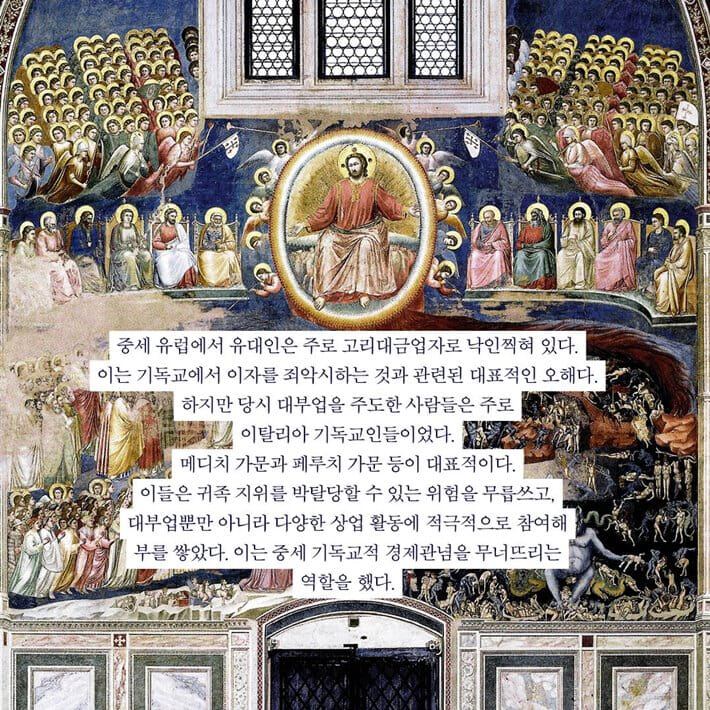 중세 유럽에서 유대인은 주로 고리대금업자로 낙인찍혀 있다.
이는 기독교에서 이자를 죄악시하는 것과 관련된 대표적인 오해다.
하지만 당시 대부업을 주도한 사람들은 주로
이탈리아 기독교인들이었다.
메디치 가문과 페루치 가문 등이 대표적이다.
이들은 귀족 지위를 박탈당할 수 있는 위험을 무릅쓰고,
대부업뿐만 아니라 다양한 상업 활동에 적극적으로 참여해
부를 쌓았다. 이는 중세 기독교적 경제관념을 무너뜨리는
역할을 했다.